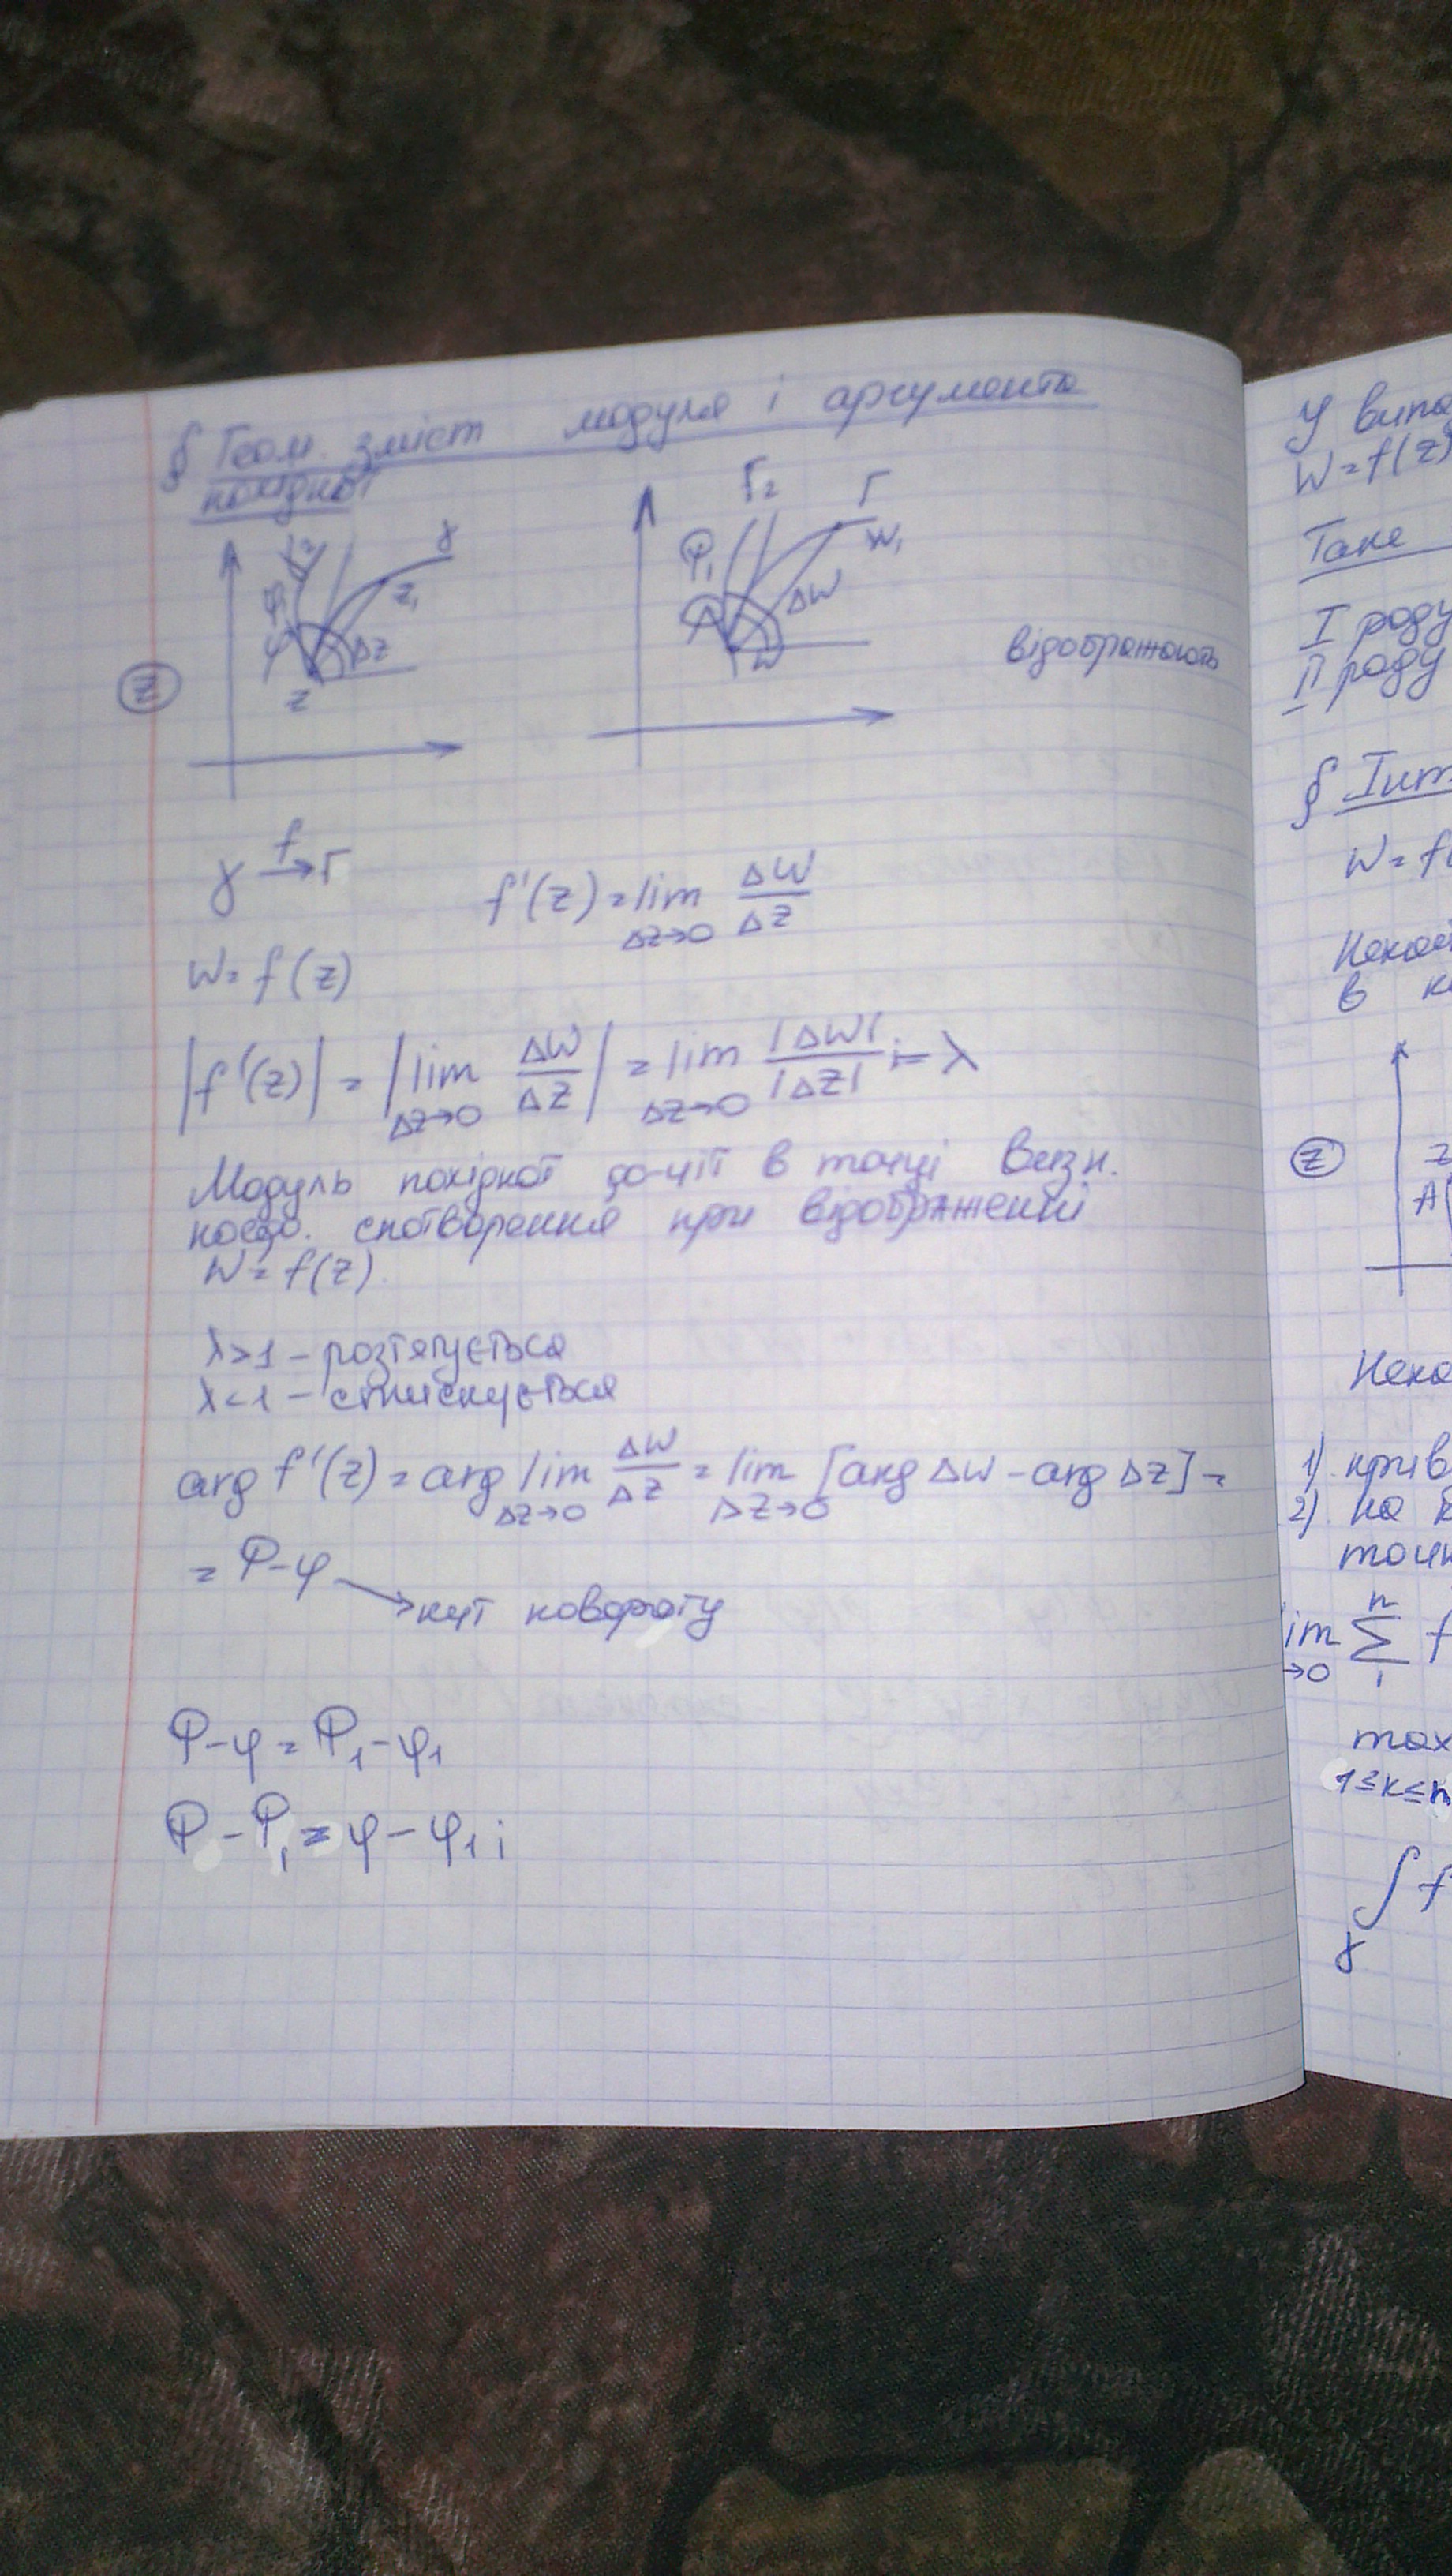 § Геом. зміст модуля і аргумента
похідної
γ
z₁
Δz
φ
z
Z
Γ₂
Γ
W₁
Φ₁
ΔW
W
відображають
γ →f Γ
f'(z) = lim Δz→0 ΔW/Δz
W = f(z)
|f'(z)| = |lim Δz→0 ΔW/ΔZ| = lim Δz→0 |ΔW|/|ΔZ| = λ
Модуль похідної ф-ції в точці визн.
коеф. спотворення при відображенні
W = f(z).
λ>1 – розтягується
λ<1 – стискується
arg f'(z) = arg lim Δz→0 ΔW/ΔZ = lim ΔZ→0 [arg ΔW – arg ΔZ] =
= Φ–φ → кут повороту
Φ–φ = Φ₁–φ₁
Φ–Φ₁ = φ–φ₁;
У
W=f(z)
Таке
I роду
II роду
§
W=f
Нехай
в
Z
A
1)
2) на
lim →0 Σ n 1 f
max
1≤k≤n
∫ γ f